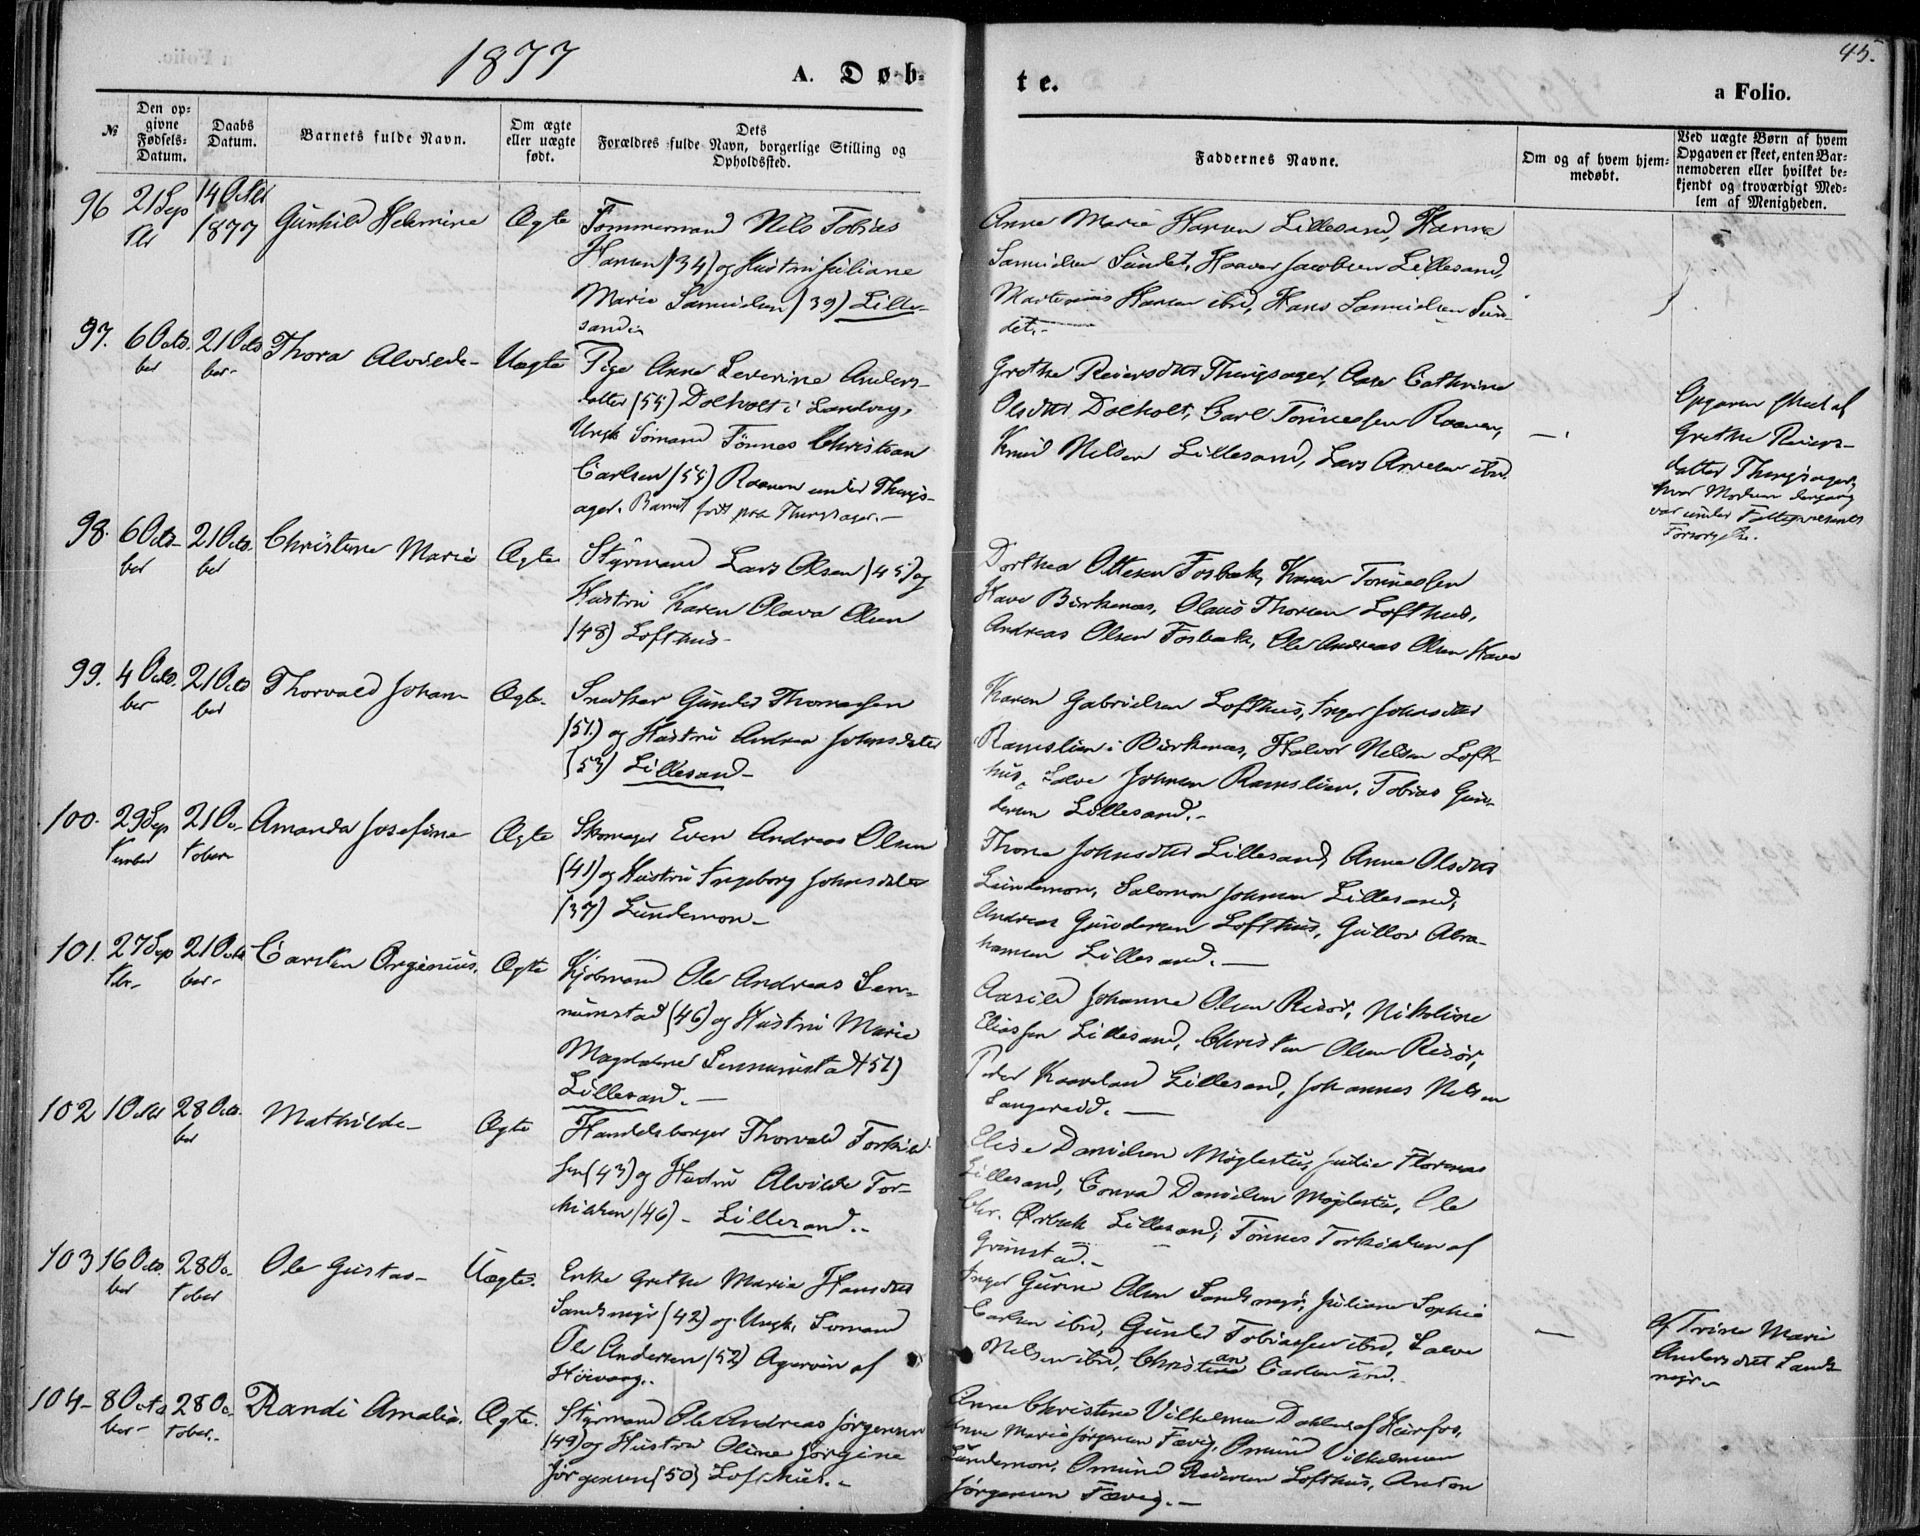 1877
A. Døb-
te.
45.
a Folio.
№
Den op-
givne
Fødsels-
Datum.
Daabs
Datum.
Barnets fulde Navn.
Om ægte
eller uægte
født.
Dets
Forældres fulde Navn, borgerlige Stilling og
Opholdssted.
Faddernes Navne.
Om og af hvem hjem-
medøbt.
Ved uægte Børn af hvem
Opgaven er skeet, enten Bar-
nemoderen eller hvilket be-
kjendt og troværdigt Med-
lem af Menigheden.
96 21 Sep
14 Octbr
1877
Gunhild Helmine
Ægte
Tømmermand Nils Tobias
Hansen (34) og Hustru Juliane
Marie Samuelsen (39) Lille-
sand.
Anne Marie Hansen Lillesand, Hanne
Samuelsen Sundet, Haaver Jacobsen Lillesand,
Hansen ibd, Hans Samuelsen Sun-
det.-
97. 6 Octo-
ber
21 Octo
ber-
Thora Alvilde-
Uægte
Pige Anne Severine Anders-
datter (55) Dolholt i Landvig,
Ungk. Sømand Tønnes Christian
Carlsen (55) Raaen under Things-
ager. Barnet født paa Thingsager.-
Grethe Reiersdtr Thingsager, Aase Cathrine
Olsdtr Dolholt, Carl Tønnessen Raaen,
Knud Nilsen Lillesand, Lars ibd.
—.
Opgaven skeet af
Grethe Reiers-
datter Thingsager,
hvor Moderen dengang
var under Fattigvæsenets
Forsorgelse.
98. 6 Octo-
ber
21 Octo.
ber
Christine Marie
Ægte
Styrmand Lars Olsen (45) og
Hustru Karen Olava Olsen
(48) Lofthus-
Dorthea Ottesen Fosbæk, Karen Tønnessen
Have Birkenæs, Olaus Thorsen Lofthus,
Andreas Olsen Fosbæk, Ole Andreas Olsen Have
99. 4 Octo.
ber
21 Octo
ber
Thorvald Johan
Ægte.
Snedker Gunder Thomassen
(51.) og Hustru Andrea Johnsdatter
(53) Lillesand-
Karen Gabrielsen Lofthus, Inger Johnsdtr
Ramslien i Birkenæs, Halvor Nilsen Loft-
hus, Salve Johnsen Ramslien, Tobias Gun-
dersen Lillesand.-
100. 29 Sep
tember
21 Oc-
tober
Amanda Josefine
Ægte
Skomager Even Andreas Olsen
(41) og Hustru Ingeborg Johnsdatter
(37) Lundemon-
Thone Johnsdtr Lillesand, Anne Olsdtr
Lundemon, Salomon Johnsen Lillesand,
Andreas Gundersen Lofthus, Gullov Abra-
hamsen Lillesand.—
101. 27 Sep
tbr-
21 Octo
ber-
Carsten Orginius.
Ægte
Kjøbmand Ole Andreas Sen-
numstad (46) og Hustru Marie
Magdalene Sennumstad (51)
Lillesand.—
Aasild Johanne Olsen Risør, Nikoline
Eliassen Lillesand, Christen Olsen Risør,
Peder Lillesand, Johannes Nilsen
Sangereid.—
102 1 Octbr
28 Octo.
ber
Mathilde-
Ægte
Handelsborger Thorvald Torkild-
sen (43) og Hustru Alvilde Tor-
kildsen (46)- Lillesand.-
Elise Danielsen Møglestu, Julie
Lillesand, Conrad Danielsen Møglestu, Ole
Chr. Ørbæk Lillesand, Tønnes Torkildsen af
Grimstad.-
103 16 Octo.
ber
28 Oc-
tober
Ole Gustav-
Uægte.
Enke Grethe Marie Hansdtr
Sandsmyr (42) og Ungk. Sømand
Ole Andersen (52) Agerøen af
Høivaag.-
Inger Gurine Olsen Sandsmyr, Juliane Sophie
Carlsen ibd, Gunder Tobiassen ibd, Salve
Nilsen ibd, Christian Carlsen ibd.-
—
af Trine Marie
Andersdtr Sands-
myr.-
104- 8 Octo
ber-
28 Oc-
tober.-
Randi Amalia.
Ægte.
Styrmand Ole Andreas Jørgensen
(49) og Hustru Oline Jørgine
Jørgensen (50) Lofthus.-
Anne Christine Vilhelmsen Dahlen af Heirfos,
Anne Marie Jørgensen Fævig, Omund Vilhelmsen
Lundemon, Omund Lofthus, Anton
Jørgensen Fævig.-